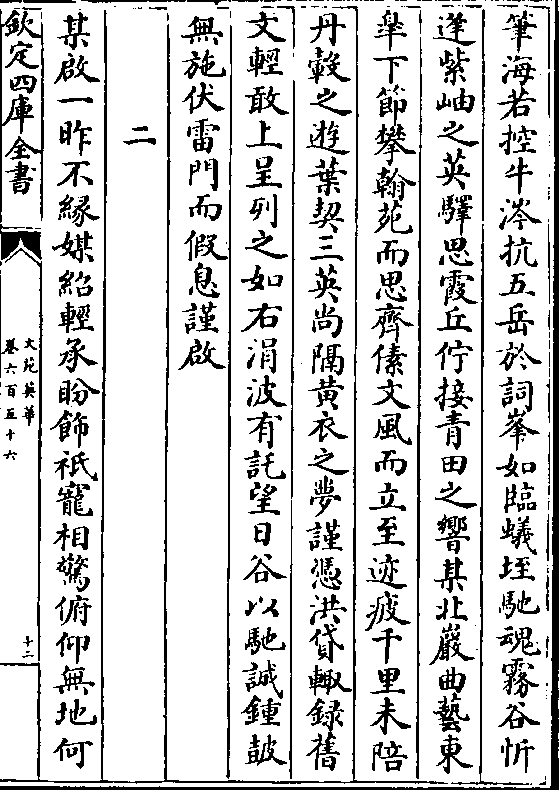 筆海若控牛涔抗五岳於詞峯如臨蟻垤馳魂霧谷忻
逢紫岫之英驛思霞丘佇接青田之響某北巖曲藝東
臯下節攀翰苑而思齊傃文風而立至迹疲千里未陪
丹轂之遊葉契三英尚隔黄衣之夢謹憑洪貸輙録舊
文輕敢上呈列之如右涓波有託望日谷以馳誠鍾皷
無施伏雷門而假息謹啟
二
某啟一昨不緣媒紹輕承盼飾祇寵相驚俯仰無地何
欽定四庫全書
文苑英華
卷六百五十六
十二